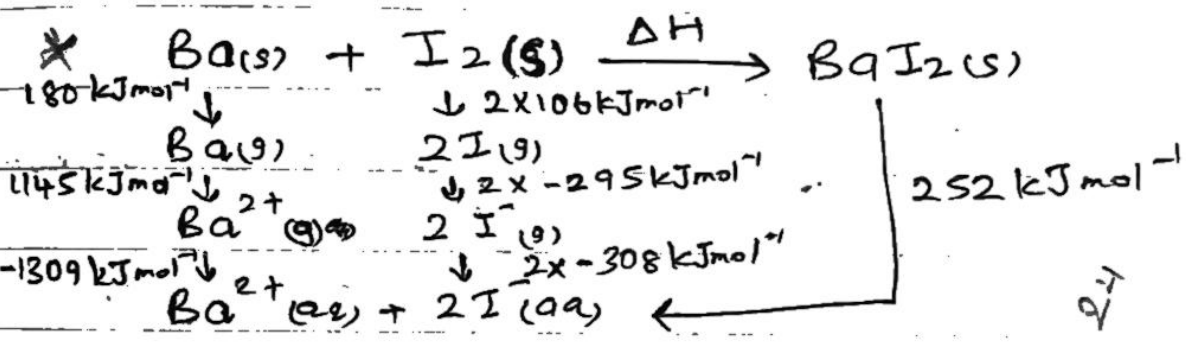 * Ba(s) + I2(s) ΔH → BaI2(s)
180 kJmol⁻¹ ↓ ↓ 2×106kJmol⁻¹
Ba(g) 2I(g)
1145kJmol⁻¹ ↓ ↓ 2×-295kJmol⁻¹ 252 kJmol⁻¹
Ba²⁺(g) 2I⁻(g)
-1309kJmol⁻¹ ↓ ↓ 2×-308kJmol⁻¹
Ba²⁺(aq) + 2I⁻(aq) ←